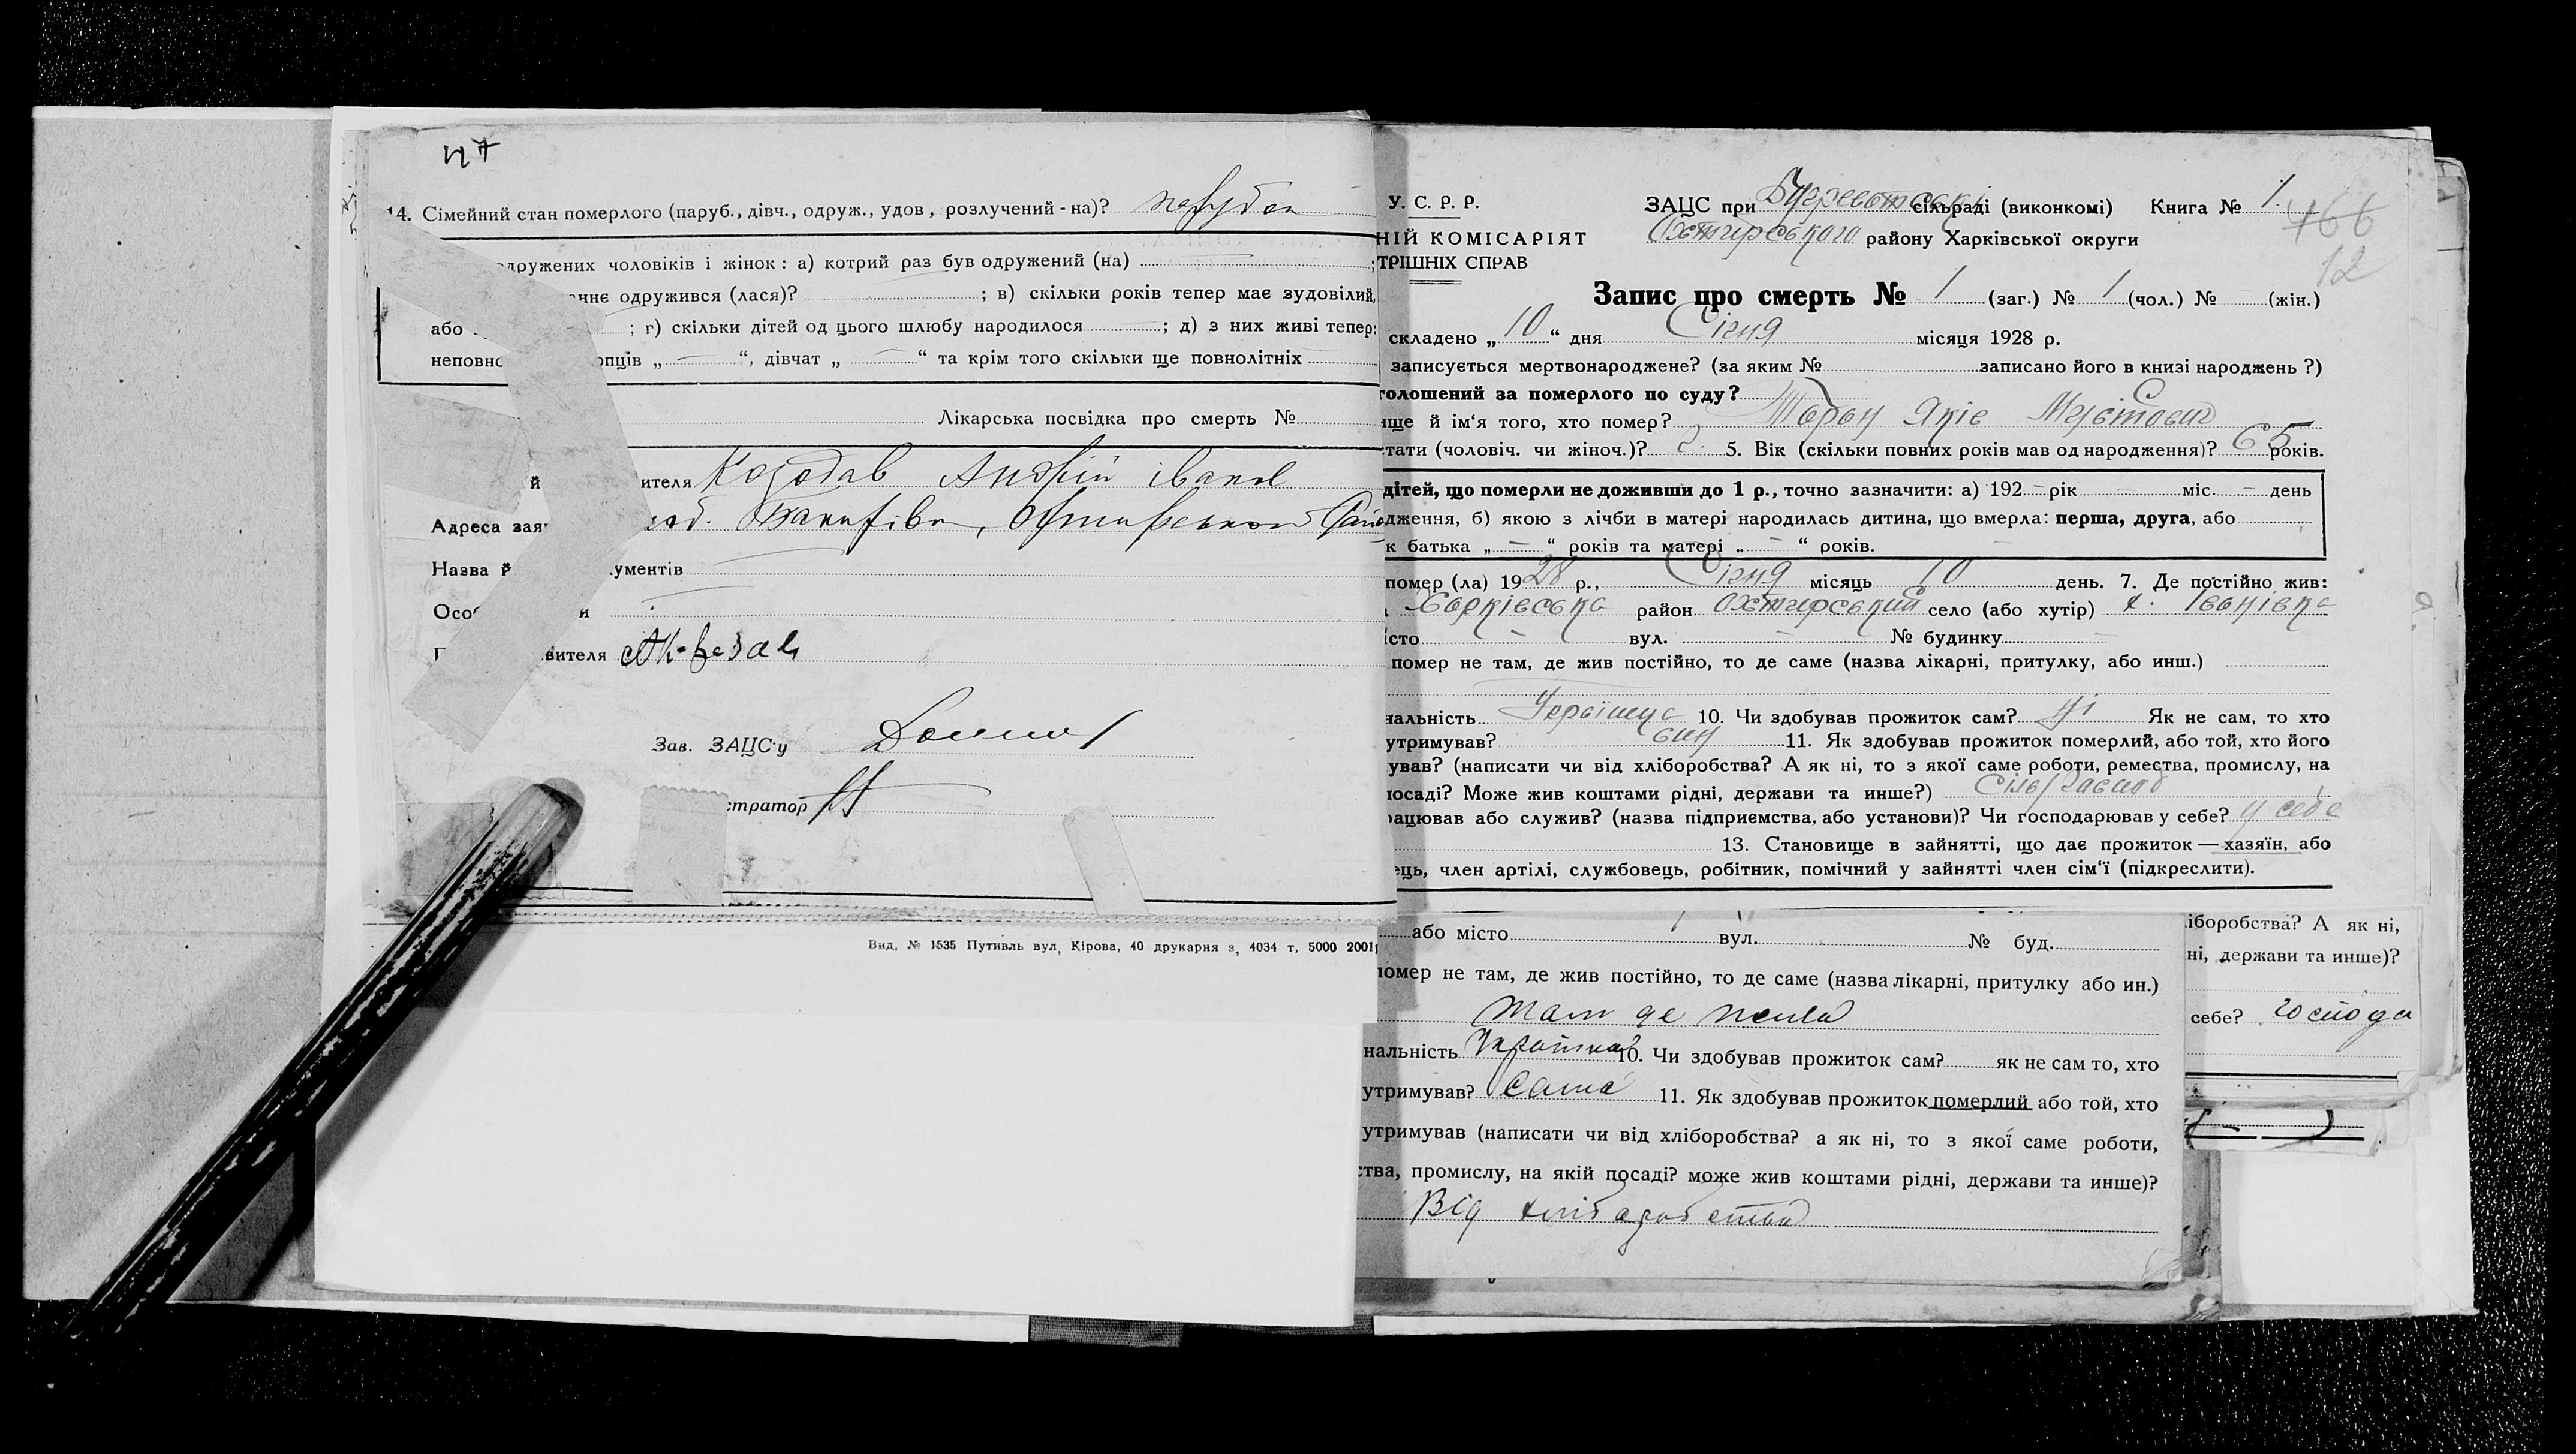 47
14. Сімейний стан померлого (паруб., дівч., одруж., удов, розлучений - на)? парубок
одружених чоловіків і жінок: а) котрий раз був одружений (на) ;
ннє одружився (лася)? ; в) скільки років тепер має зудовілий,
або ; г) скільки дітей од цього шлюбу народилося ; д) з них живі тепер:
неповно опців „ — “, дівчат „ — “ та крім того скільки ще повнолітніх
Лікарська посвідка про смерть №
й ителя Козодав Андрій
Адреса зая
Назва й ументів
Осо и
Г вителя
Зав. ЗАЦС'у
стратор
Вид. № 1535 Путивль вул, Кірова, 40 друкарня з, 4034 т, 5000 2001
У. С. Р. Р.
НІЙ КОМІСАРІЯТ
ТРІШНІХ СПРАВ
ЗАЦС при сільраді (виконкомі) Книга № 1.
Охтирського району Харківської округи
466
12
Запис про смерть № 1 (заг.) № 1 (чол.) № (жін.)
складено „ 10 “ дня Січня місяця 1928 р.
записується мертвонароджене? (за яким № записано його в книзі народжень ?)
голошений за померлого по суду?
ище й ім‘я того, хто помер? Яків
тати (чоловіч. чи жіноч.)? 5. Вік (скільки повних років мав од народження)? 65 років.
дітей, що померли не доживши до 1 р., точно зазначити: а) 192 — рік — міс. — день
дження, б) якою з лічби в матері народилась дитина, що вмерла: перша, друга, або
к батька „ — “ років та матері „ — “ років.
помер (ла) 1928 р., Січня місяць 10 день. 7. Де постійно жив:
Харківська район Охтирський село (або хутір) х. Іванівка
істо — вул. — № будинку —
помер не там, де жив постійно, то де саме (назва лікарні, притулку, або инш.)
нальність 10. Чи здобував прожиток сам? ні Як не сам, то хто
утримував? син 11. Як здобував прожиток померлий, або той, хто його
ував? (написати чи від хліборобства? А як ні, то з якої саме роботи, ремества, промислу, на
посаді? Може жив коштами рідні, держави та инше?)
рацював або служив? (назва підприємства, або установи)? Чи господарював у себе? у себе
13. Становище в зайнятті, що дає прожиток — хазяїн, або
ець, член артілі, службовець, робітник, помічний у зайнятті член сім‘ї (підкреслити).
або місто вул. № буд.
помер не там, де жив постійно, то де саме (назва лікарні, притулку або ин.)
там де жила
нальність Українка 10. Чи здобував прожиток сам? як не сам то, хто
утримував? Сама 11. Як здобував прожиток померлий або той, хто
утримував (написати чи від хліборобства? а як ні, то з якої саме роботи,
ства, промислу, на якій посаді? може жив коштами рідні, держави та инше)?
Від хліборобства
ліборобства? А як ні,
ні, держави та инше)?
себе? господа